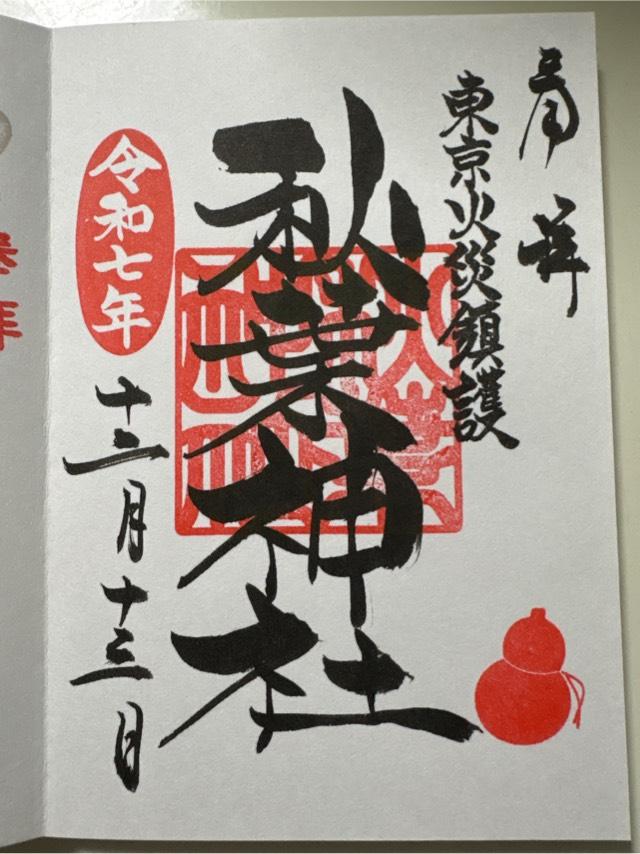 奉拝
東京火災鎮護
秋葉神社
令和七年
十二月十三日